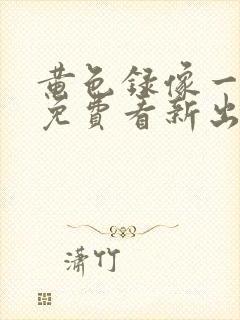 黄色录像一
免費看新出
潇竹